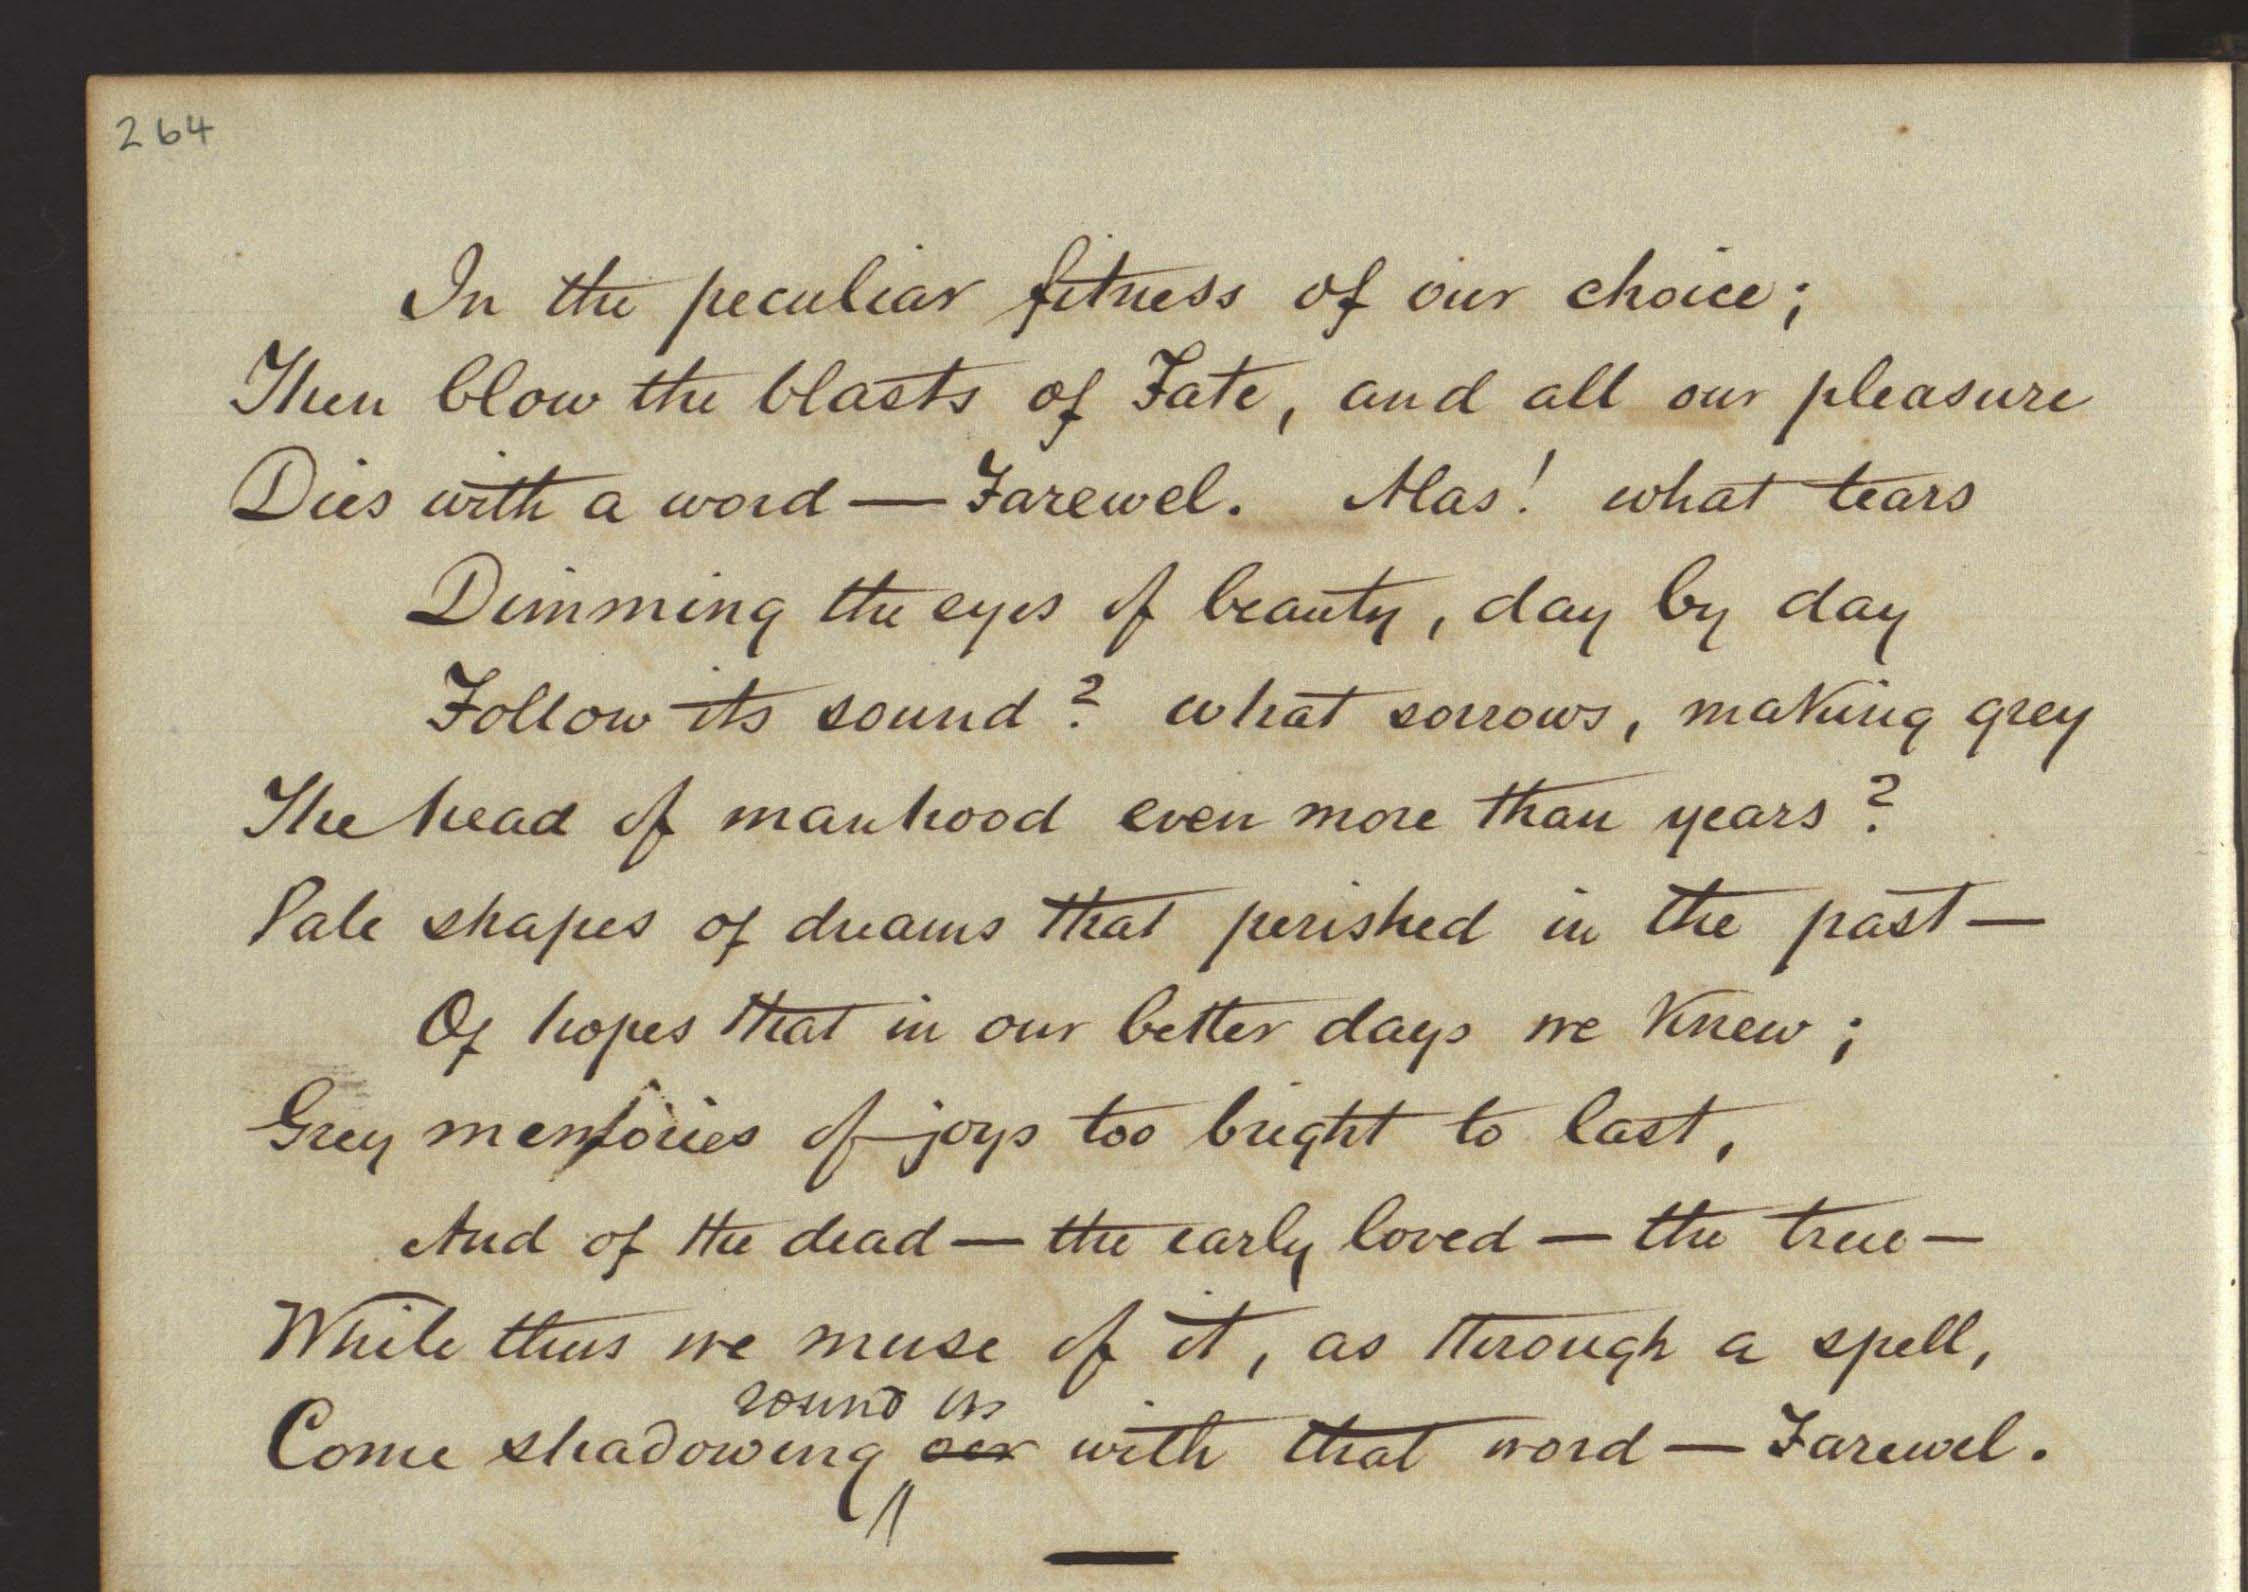 264
In the peculiar fitness of our choice;
Then blow the blasts of Fate, and all our pleasure
Dies with a word — Farewel. Alas! what tears
Dimming the eyes of beauty, day by day
Follow its sound? what sorrows, making grey
The head of manhood even more than years?
Pale shapes of dreams that perished in the past —
Of hopes that in our better days we knew;
Grey memories of joys too bright to last,
And of the dead — the early loved — the true —
While thus we muse of it, as through a spell,
round us
Come shadowing with that word — Farewel.